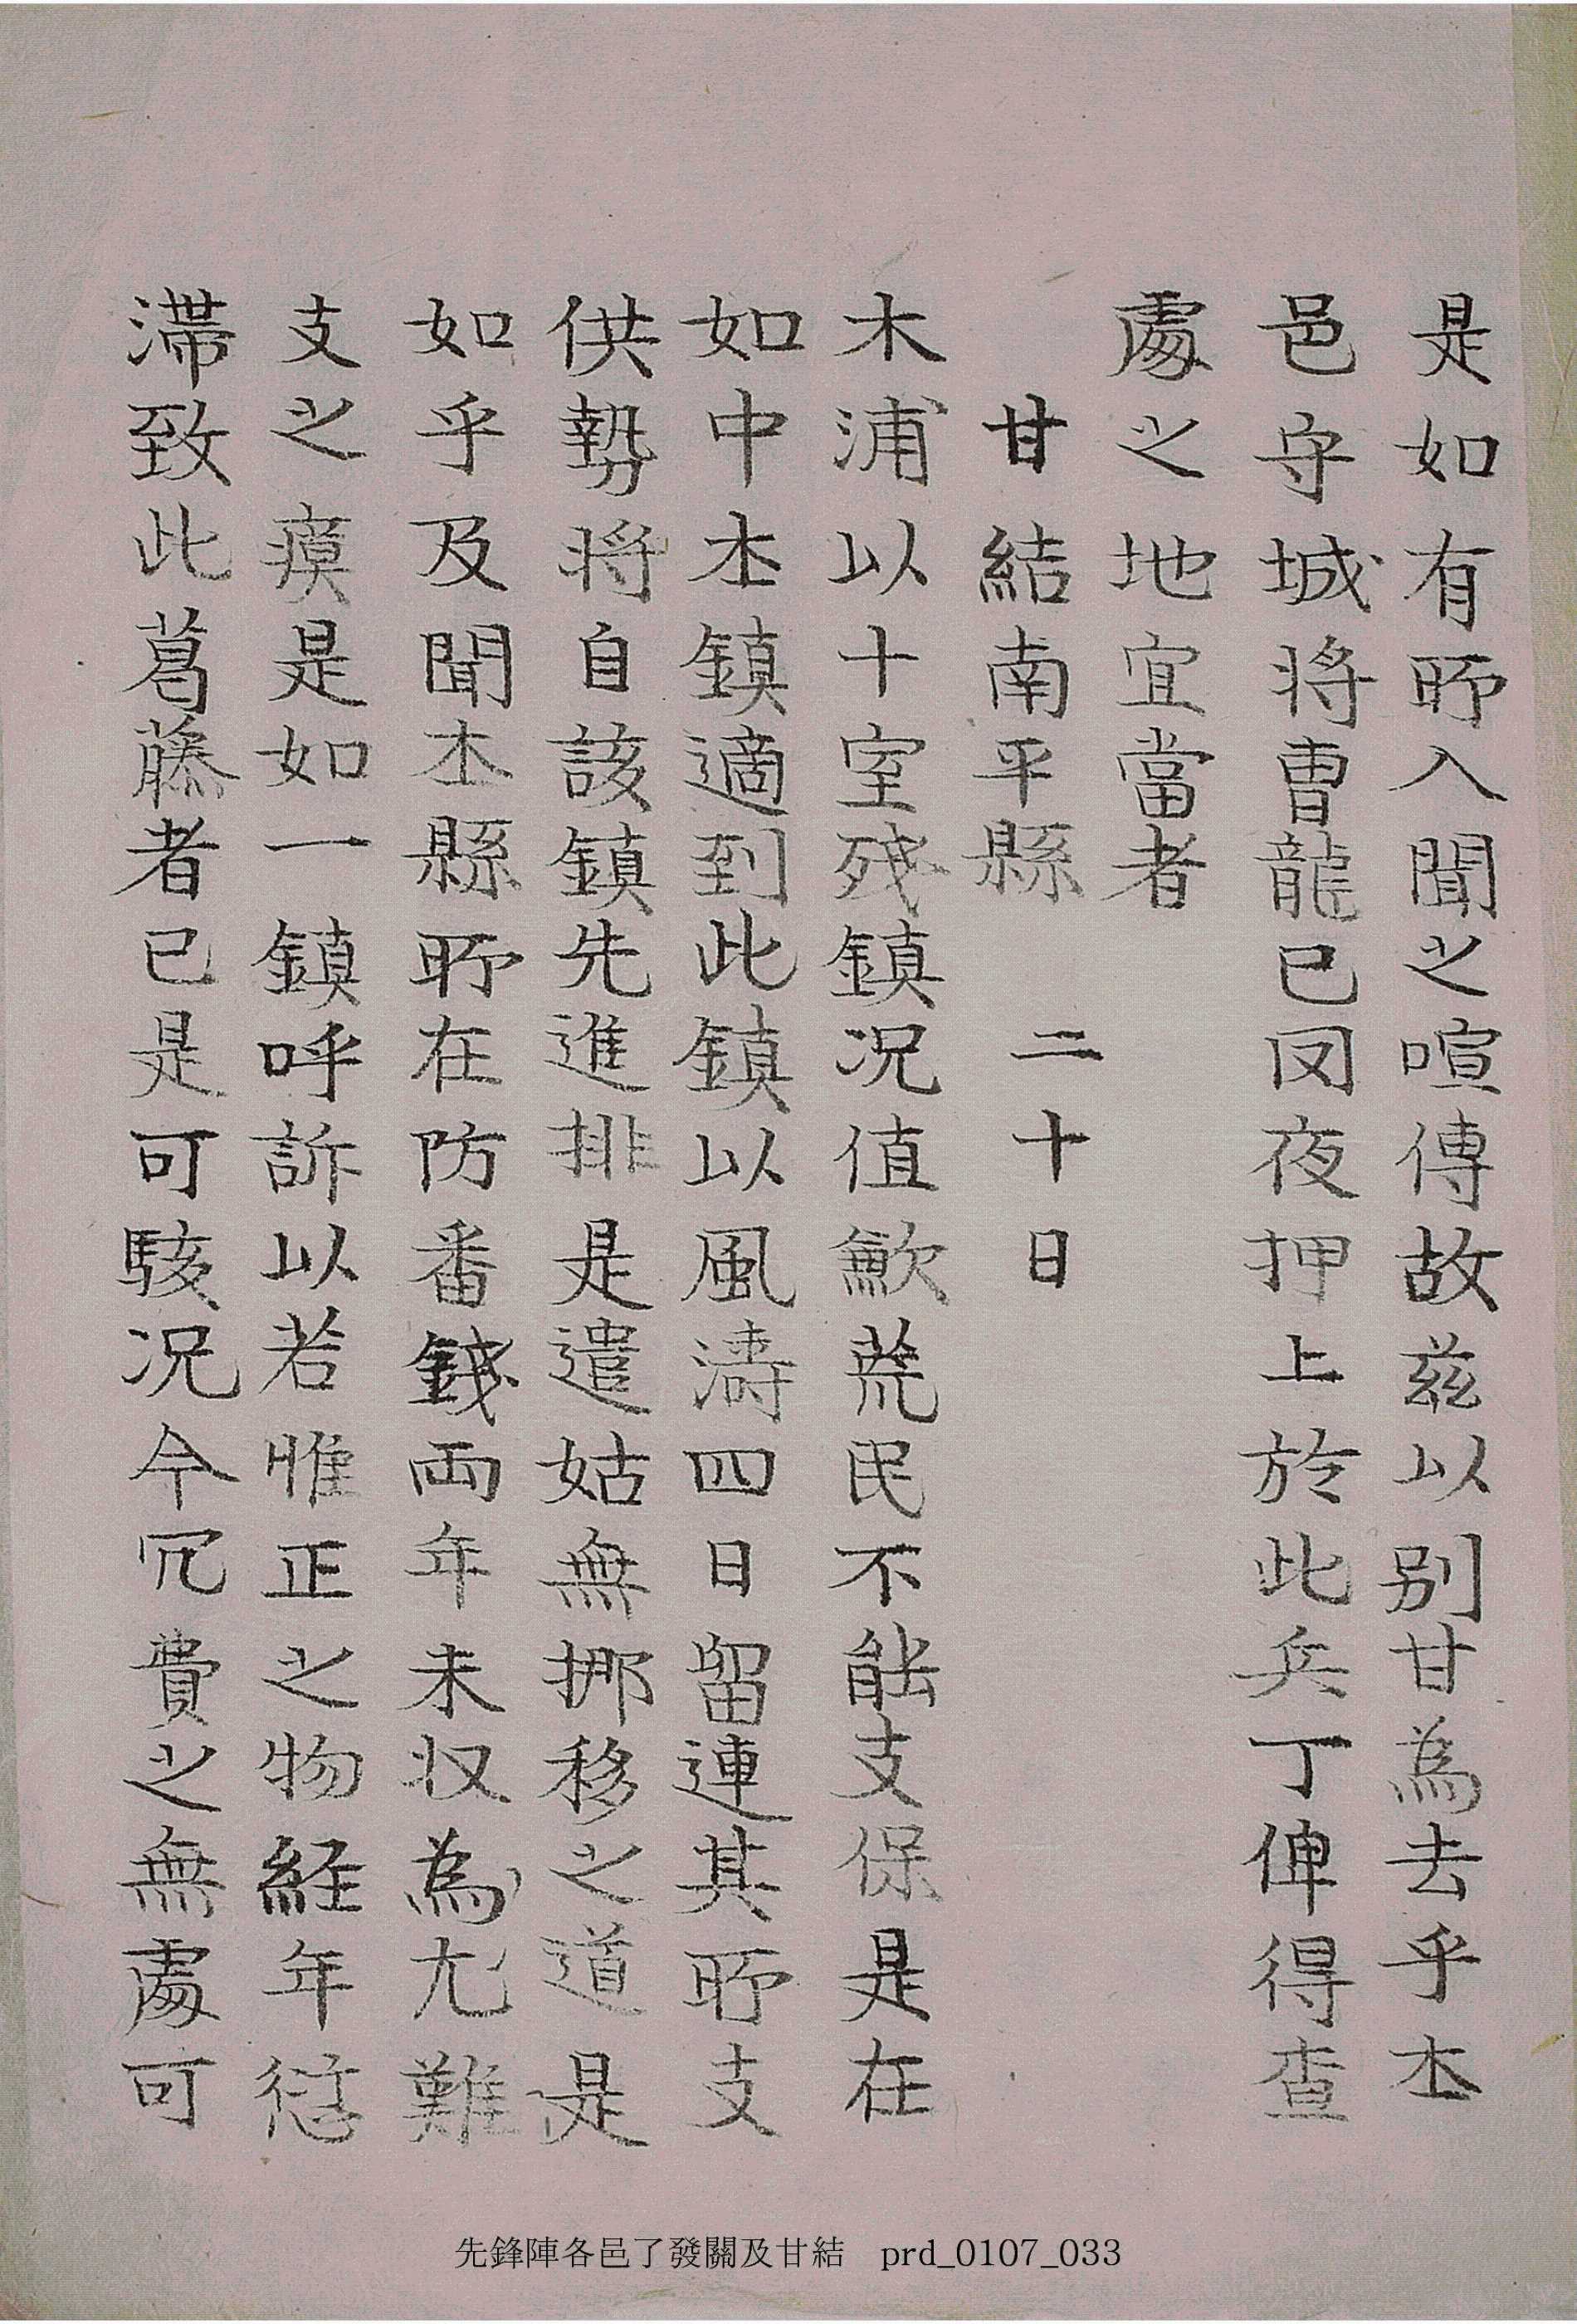 是如有所入聞之喧傳故玆以別甘為去乎本
邑守城將曺龍已夙夜押上於此兵丁俾得査
處之地宜當者
甘結南平縣 二十日
木浦以十室殘鎮况值歉荒民不能支保是在
如中本鎮適到此鎮以風濤四日留連其所支
供勢將自該鎮先進排是遣姑無挪移之道是
如乎及聞本縣所在防番錢両年未収為尤難
支之瘼是如一鎮呼訴以若惟正之物経年愆
滯致此葛藤者已是可駭况今冗費之無處可
先鋒陣各邑了發關及甘結 prd_0107_033